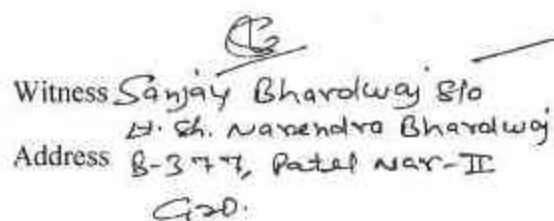 Witness Sanjay Bhardwaj S/o
Lt. Sh. Narendra Bhardwaj
Address B-377, Patel Nar-II
GZD.